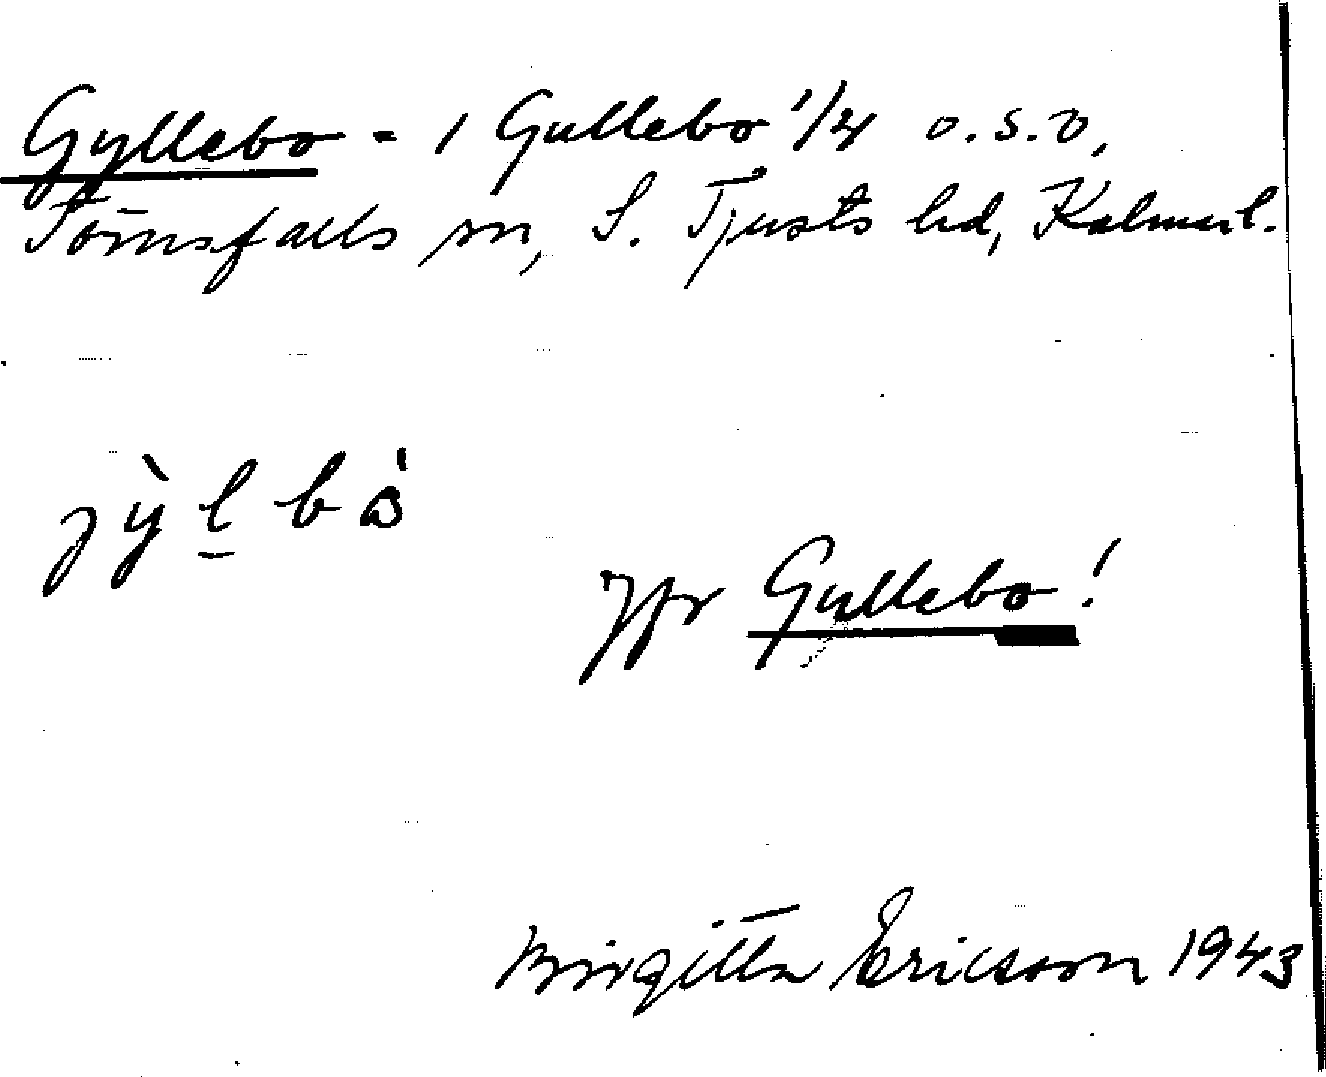 Gyllebo = / Gullebo 1/4 o.s.o,
Törnsfalls sn, S. Tjusts hd, Kalmar l.
Jfr Gullebo!
Birgitta Ericson 1943